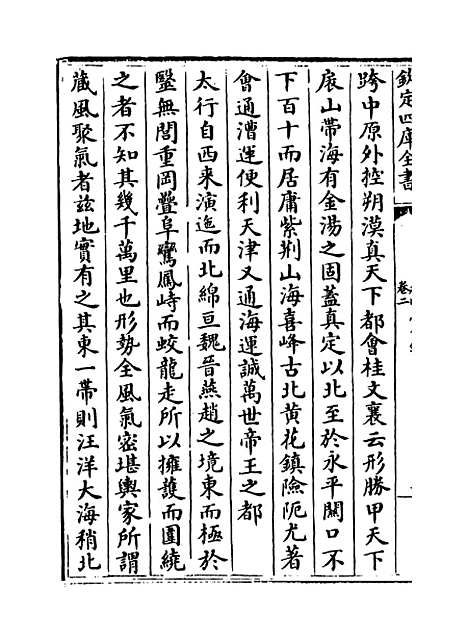 欽定四庫全書
卷二
跨中原外控朔漠真天下都會桂文襄云形勝甲天下
扆山帶海有金湯之固蓋真定以北至於永平關口不
下百十而居庸紫荆山海喜峰古北黄花鎮險阨尤著
會通漕運便利天津又通海運誠萬世帝王之都
太行自西來演迤而北綿亘魏晉燕趙之境東而極於
毉無閭重岡疊阜鸞鳳峙而蛟龍走所以擁護而圍繞
之者不知其幾千萬里也形勢全風氣密堪輿家所謂
藏風聚氣者兹地實有之其東一帶則汪洋大海稍北